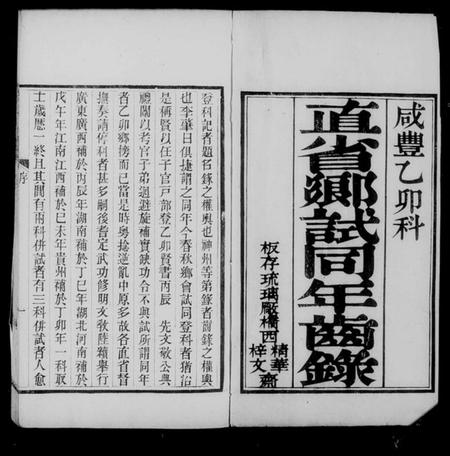 咸豐乙卯科
直省鄉試同年齒錄
板存琉璃廠橋西
精華齋
梓文
登科記者題名錄之權輿也神州等第錄者齒錄之權輿
也李肇曰俱捷謂之同年今春秋鄉會試同登科者猶治
是稱賢以任子官戶部登乙卯賢書丙辰 先文敬公典
禮闈以考官子弟迴避旋補實缺功令不與試所謂同年
者乙卯鄉榜而已當是時粵捻逆亂中原多故各直省督
撫奏請停科者甚多嗣後耆定武功修明文敎陸續舉行
廣東廣西補於丙辰年湖南補於丁巳年湖北河南補於
戊午年江南江西補於己未年貴州補於丁卯年一科取
士歲歷一終且其間有兩科併試者有三科併試者人愈
序
一